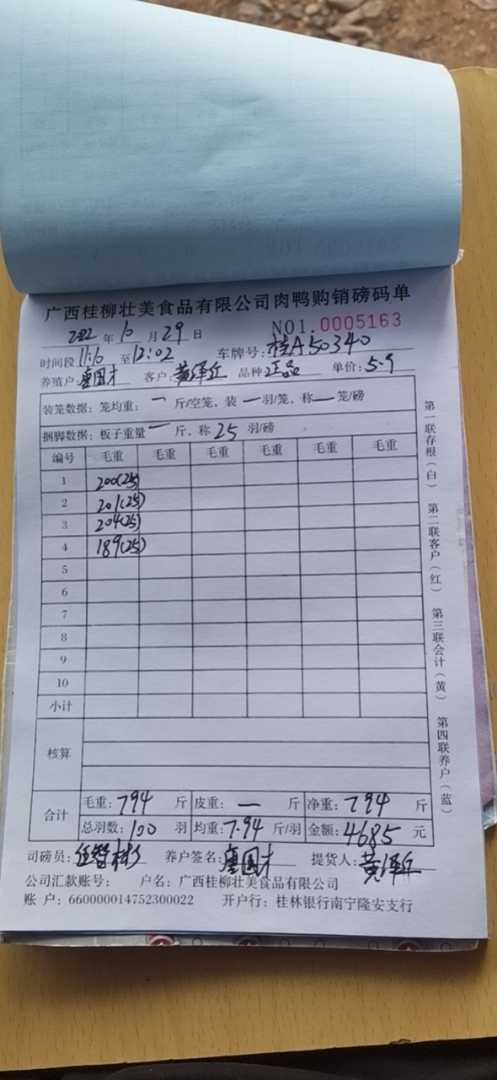 广西桂柳壮美食品有限公司肉鸭购销磅码单
2022 年 10 月 29 日 NO1.0005163
时间段 11:10 至 12:02 车牌号:桂A50340
养殖户 廖国才 客户:黄泽丘 品种 正品 单价:5.9
装笼数据:笼均重: 一 斤/空笼,装 一 羽/笼,称 一 笼/磅
捆脚数据:板子重量 一 斤,称 25 羽/磅
编号 毛重 毛重 毛重 毛重 毛重 毛重
1 200(25)
2 201(25)
3 204(25)
4 189(25)
5
6
7
8
9
10
小计
核算
合计 毛重:794 斤 皮重: 一 斤 净重:794 斤
总羽数:100 羽 均重:7.94 斤/羽 金额:4685 元
司磅员: 养户签名:廖国才 提货人:黄泽丘
公司汇款账号: 户名:广西桂柳壮美食品有限公司
账 户:660000014752300022 开户行:桂林银行南宁隆安支行
第一联存根(白) 第二联客户(红) 第三联会计(黄) 第四联养户(蓝)